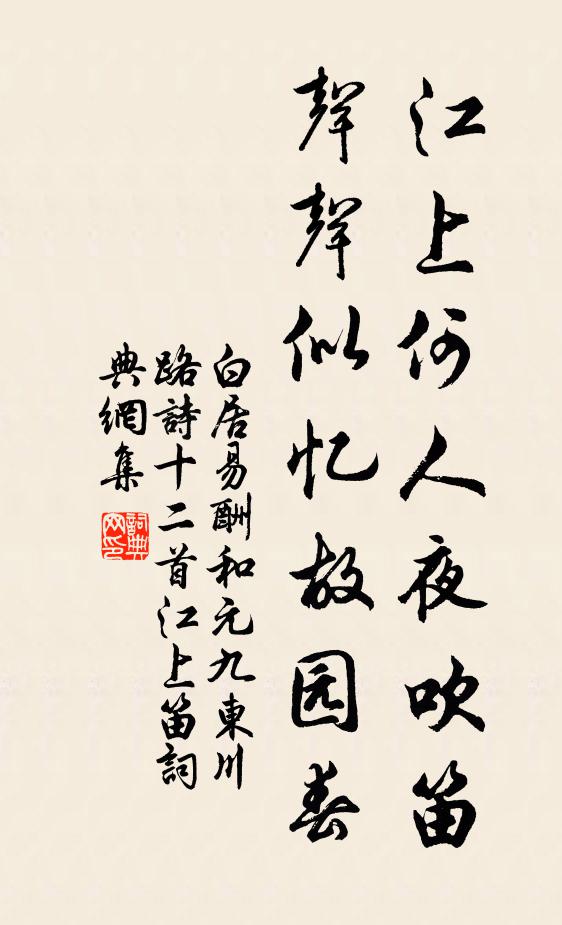 江上何人夜吹笛
聲聲似忆故园春
白居易酬和元九東川
路詩十二首江上笛詞
典網集
詞典网印